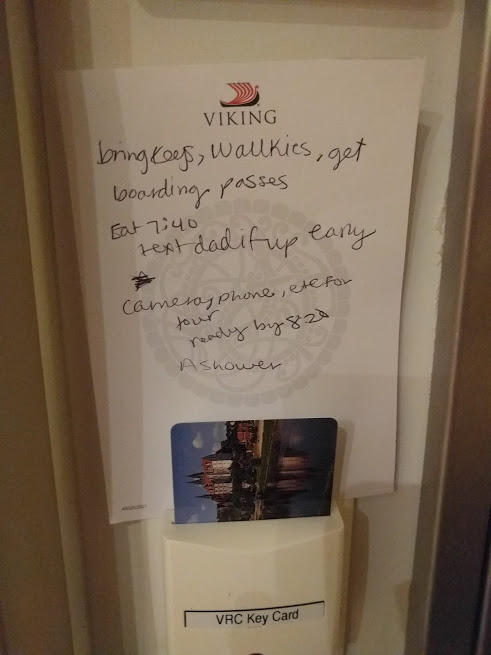 VIKING
bring keys, wallkies, get
boarding passes
Eat 7:40
text dad if up early
camera, phone, etc for
tour
ready by 8:20
A shower
VRC Key Card